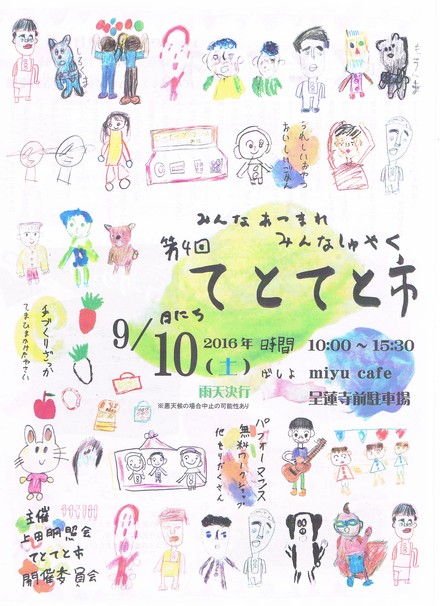 しろくま
もうま
うれしいおやつ
おいしいごはん
みんなあつまれ
みんなしゅやく
第4回
てとてと市
手づくりざっか
てまひまかけたやさい
日にち
9/10(土)
2016年
時間
10:00～15:30
ばしょ
miyu cafe
呈蓮寺前駐車場
雨天決行
※悪天候の場合中止の可能性あり
パフォーマンス
無料ワークショップ
他もりだくさん
主催
上田明照会
てとてと市
開催委員会